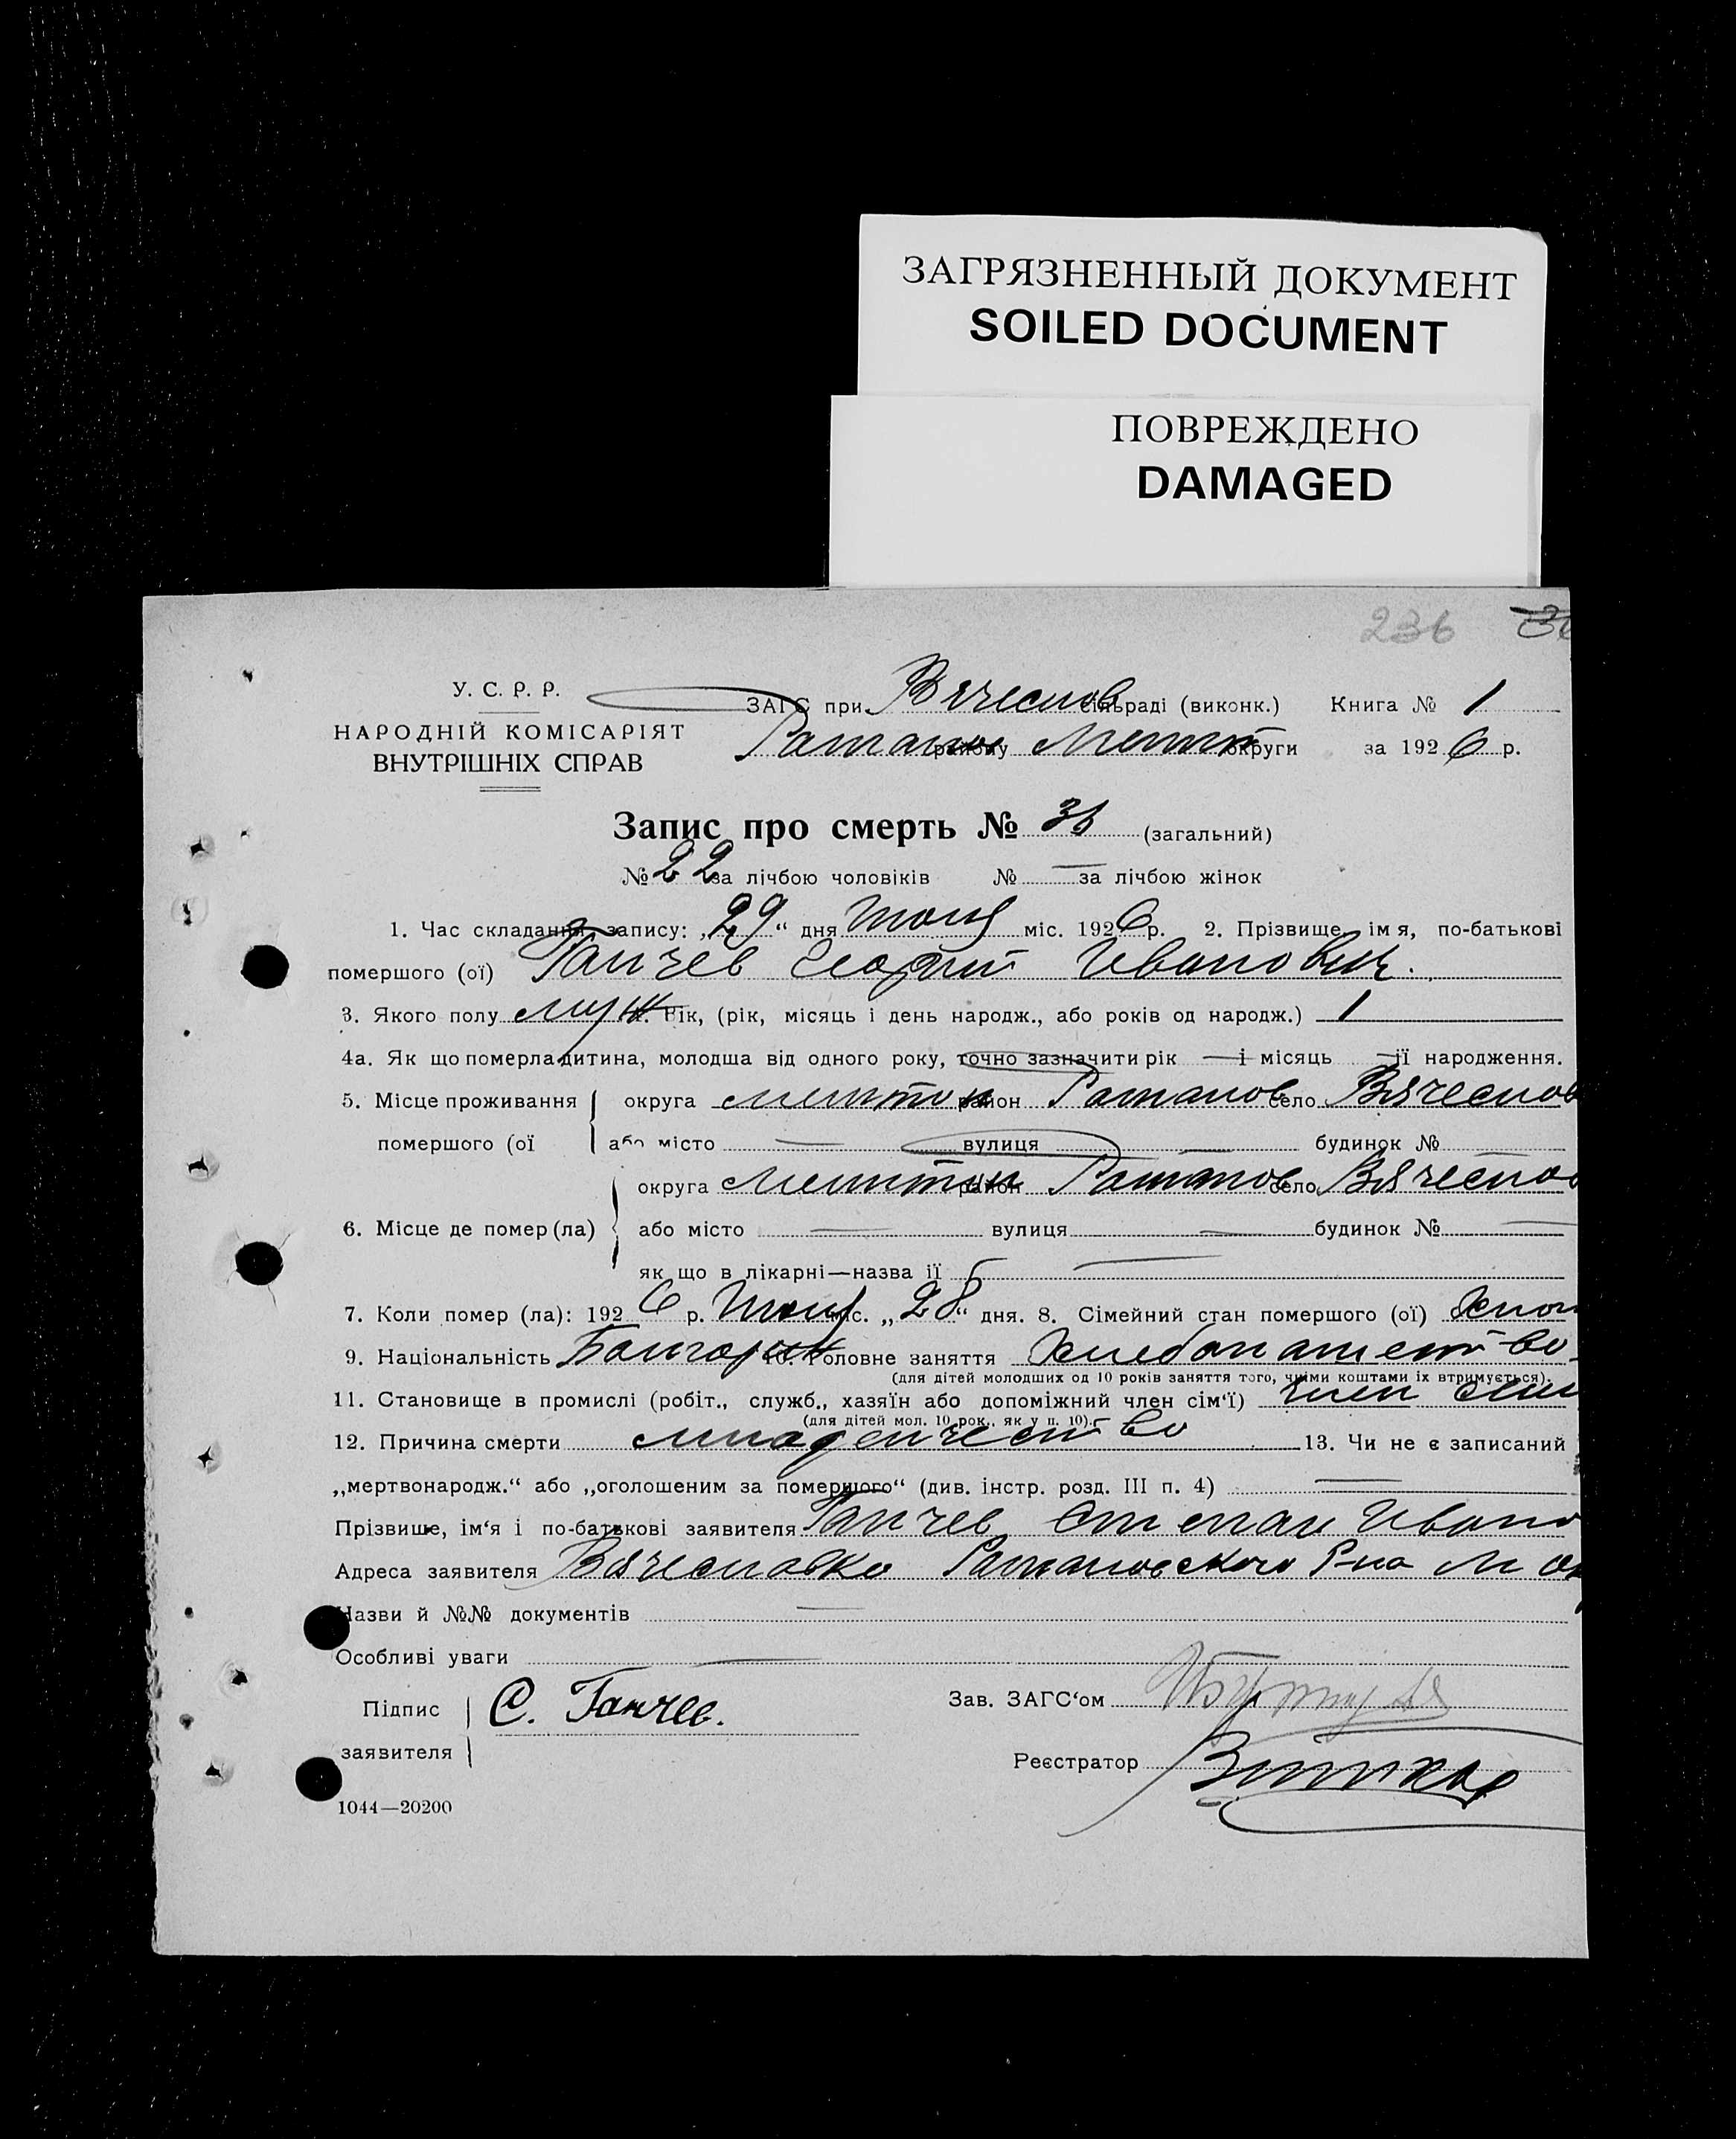 ЗАГРЯЗНЕННЫЙ ДОКУМЕНТ
SOILED DOCUMENT
ПОВРЕЖДЕНО
DAMAGED
236
У. С. Р. Р.
НАРОДНІЙ КОМІСАРІЯТ
ВНУТРІШНІХ СПРАВ
ЗАГС при Вячеслов сільраді (виконк.) Книга № 1
району округи за 1926 р.
Запис про смерть № 36 (загальний)
№ 22 за лічбою чоловіків № — за лічбою жінок
1. Час складання запису: „29“ дня міс. 1926 р. 2. Прізвище, імя, по-батькові
помершого (ої) Ганчев Георгий Иванович.
3. Якого полу муж Рік, (рік, місяць і день народж., або років од народж.) 1
4а. Як що померла дитина, молодша від одного року, точно зазначити рік — і місяць — її народження.
5. Місце проживання округа район село Вячеслов
помершого (ої або місто — вулиця — будинок № —
6. Місце де помер (ла) округа район село Вячеслов
або місто — вулиця — будинок № —
як що в лікарні—назва її —
7. Коли помер (ла): 1926 р. міс. „28“ дня. 8. Сімейний стан помершого (ої) холост
9. Національність Болгарин 10. Головне заняття Хлебопашество
(для дітей молодших од 10 років заняття того, чиїми коштами їх втримується).
11. Становище в промислі (робіт., служб., хазяїн або допоміжний член сім‘ї) член семи
(для дітей мол. 10 рок., як у п. 10).
12. Причина смерти младенчество 13. Чи не є записаний
„мертвонародж.“ або „оголошеним за помершого“ (див. інстр. розд. III п. 4) —
Прізвище, ім‘я і по-батькові заявителя Ганчев Степан Ивано
Адреса заявителя Вячеславка Р-на М ок
Назви й №№ документів —
Особливі уваги —
Підпис заявителя С. Ганчев.
Зав. ЗАГС‘ом
Реєстратор
1044—20200